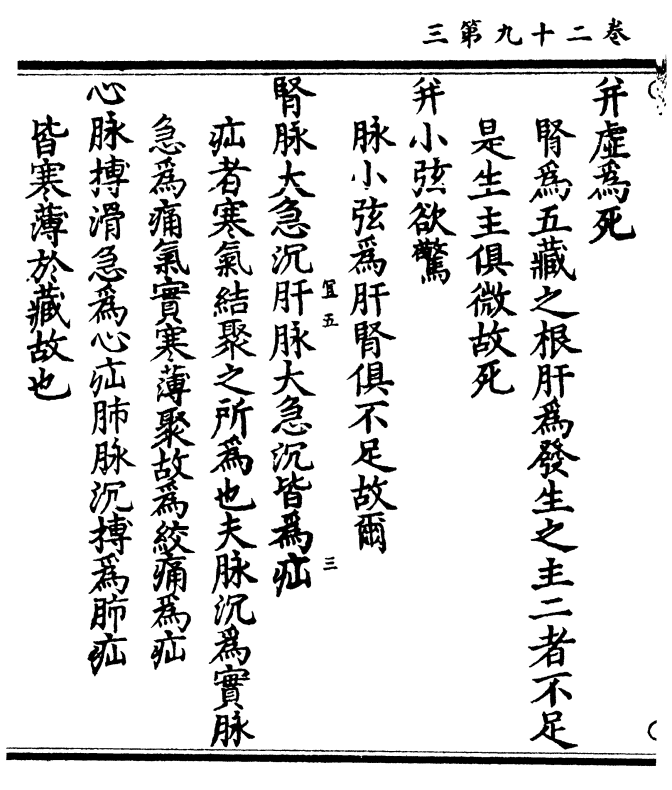 卷二十九第三
并虛爲死
腎爲五藏之根肝爲發生之主二者不足
是生主俱微故死
并小弦欲驚
脉小弦爲肝腎俱不足故爾
腎脉大急沉肝脉大急沉皆爲疝
宜五
三
疝者寒氣結聚之所爲也夫脉沉爲實脉
急爲痛氣實寒薄聚故爲絞痛爲疝
心脉搏滑急爲心疝肺脉沉搏爲肺疝
皆寒薄於藏故也